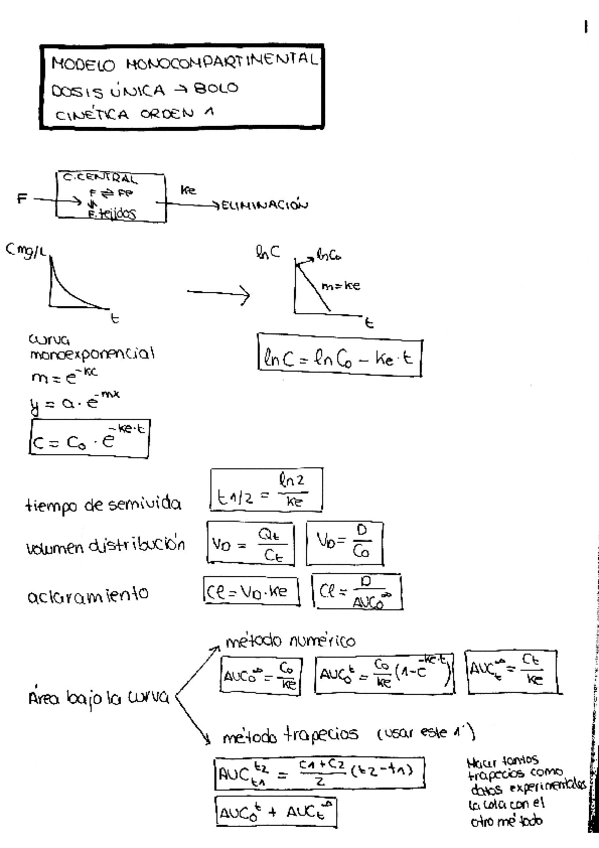 1
MODELO MONOCOMPARTIMENTAL
DOSIS ÚNICA → BOLO
CINÉTICA ORDEN 1
C.CENTRAL
F ⇌ FP
F → F. tejidos
Ke → ELIMINACIÓN
C mg/L
t
ln C
ln C₀
m = ke
t
curva
monoexponencial
m = e^-kc
y = a · e^-mx
C = C₀ · e^-ke·t
ln C = ln C₀ - ke · t
tiempo de semivida t1/2 = ln2/ke
volumen distribución VD = Qt/Ct VD = D/C₀
aclaramiento Cl = VD · ke Cl = D/AUC₀^∞
Área bajo la curva
método numérico
AUC₀^∞ = C₀/ke AUC₀^t = C₀/ke (1 - e^-ke·t) AUCt^∞ = Ct/ke
método trapecios (usar este 1º)
AUCt1^t2 = C1+C2/2 (t2-t1)
AUC₀^t + AUCt^∞
Hacer tantos
trapecios como
datos experimentales
la cola con el
otro método